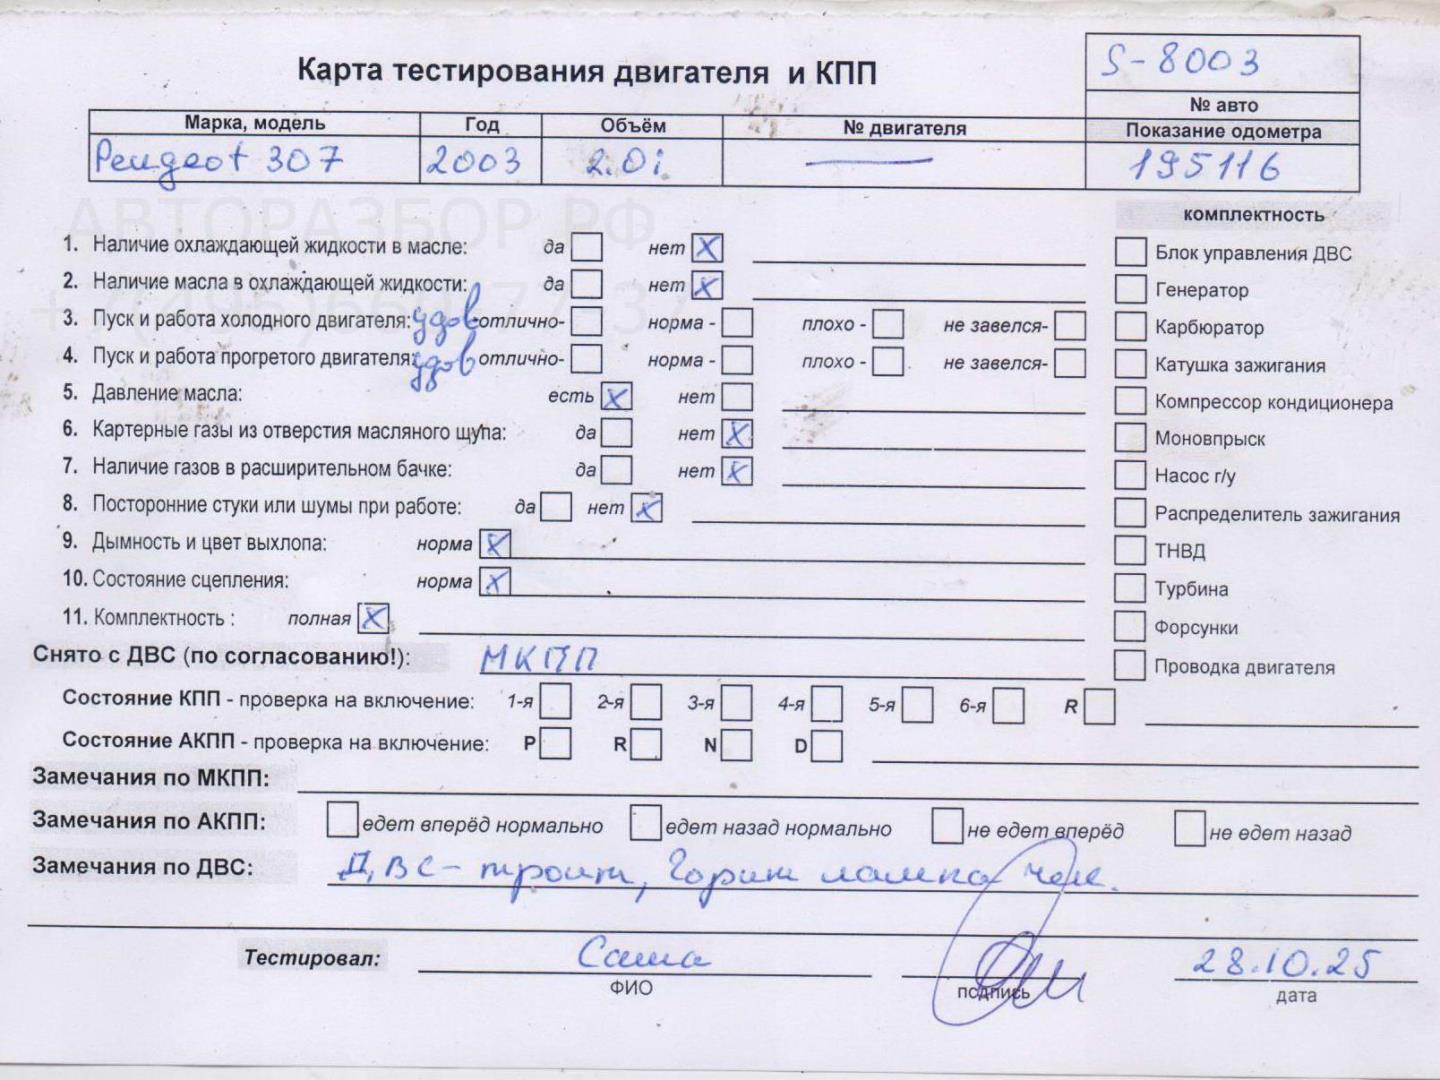 Карта тестирования двигателя и КПП
S-8003
№ авто
Марка, модель Год Объём № двигателя Показание одометра
Peugeot 307 2003 2.0i — 195116
АВТОРАЗБОР.РФ
комплектность
1. Наличие охлаждающей жидкости в масле: да нет X
Блок управления ДВС
2. Наличие масла в охлаждающей жидкости: да нет X
Генератор
3. Пуск и работа холодного двигателя: удов отлично- норма - плохо - не завелся-
Карбюратор
4. Пуск и работа прогретого двигателя: удов отлично- норма - плохо - не завелся-
Катушка зажигания
5. Давление масла: есть X нет
Компрессор кондиционера
6. Картерные газы из отверстия масляного щупа: да нет X
Моновпрыск
7. Наличие газов в расширительном бачке: да нет X
Насос г/у
8. Посторонние стуки или шумы при работе: да нет X
Распределитель зажигания
9. Дымность и цвет выхлопа: норма X
ТНВД
10. Состояние сцепления: норма X
Турбина
11. Комплектность : полная X
Форсунки
Снято с ДВС (по согласованию!): МКПП
Проводка двигателя
Состояние КПП - проверка на включение: 1-я 2-я 3-я 4-я 5-я 6-я R
Состояние АКПП - проверка на включение: P R N D
Замечания по МКПП:
Замечания по АКПП: едет вперёд нормально едет назад нормально не едет вперёд не едет назад
Замечания по ДВС: ДВС- троит, Горит лампа чек.
Тестировал: Саша 28.10.25
ФИО подпись дата